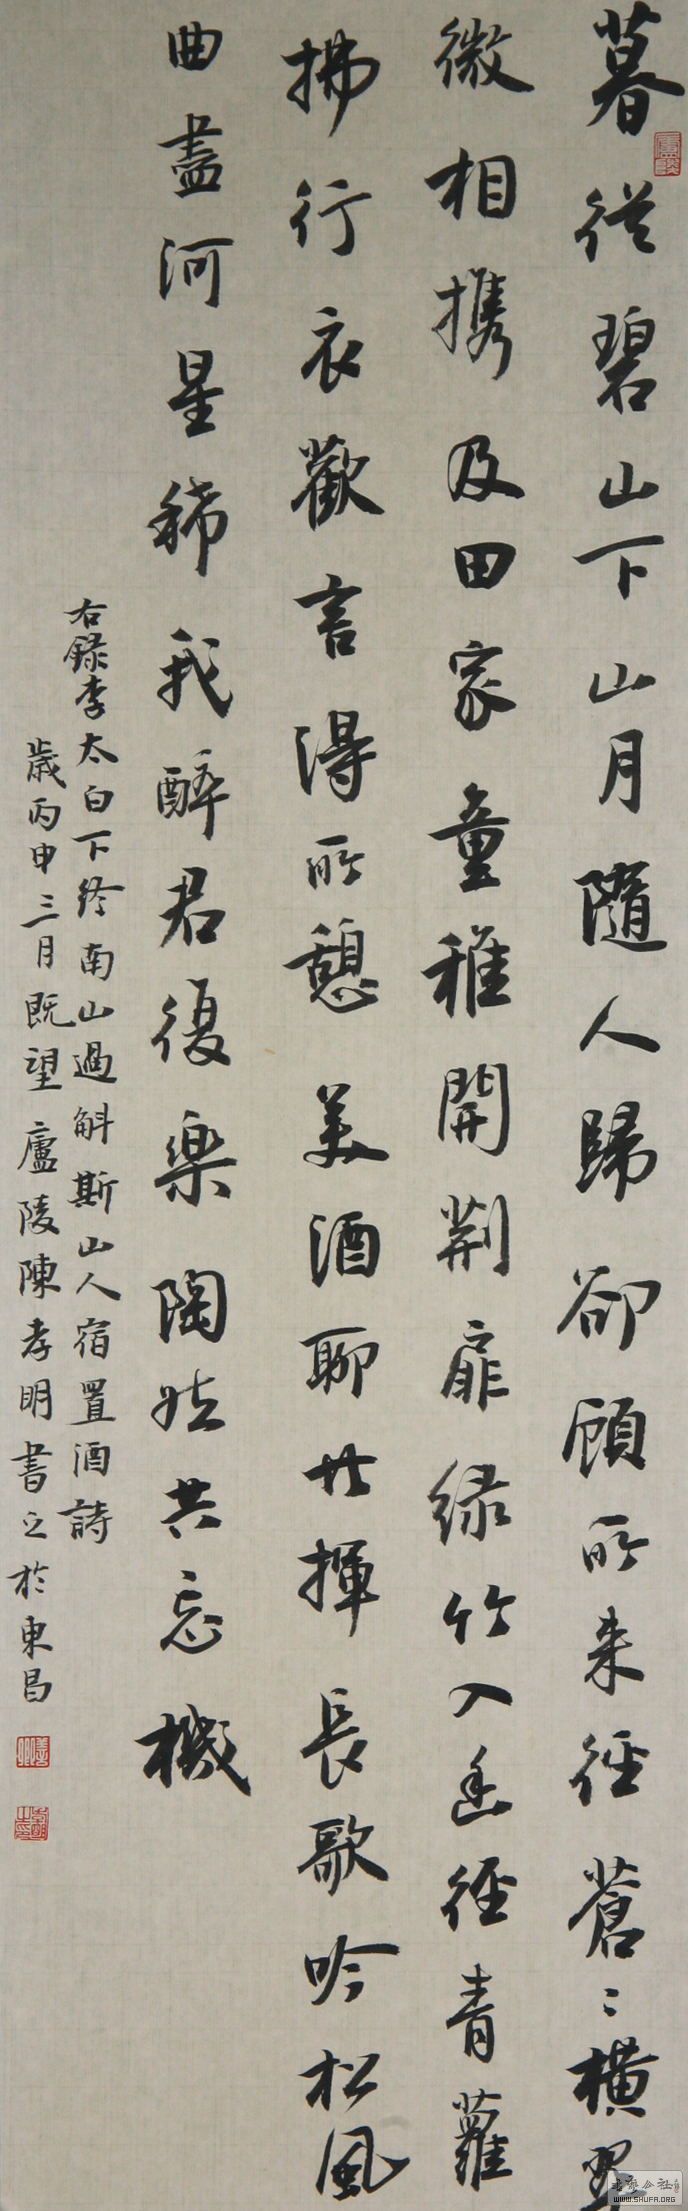 暮從碧山下山月隨人歸卻顧所来徑蒼〻橫翠
微相攜及田家童稚開荆扉緑竹入幽徑青蘿
拂行衣歡言得所憩美酒聊共揮長歌吟松風
曲盡河星稀我醉君復樂陶然共忘機
右録李太白下終南山過斛斯山人宿置酒詩
歲丙申三月既望廬陵陳孝明書之於東昌
书法公社
WWW.SHUFA.ORG